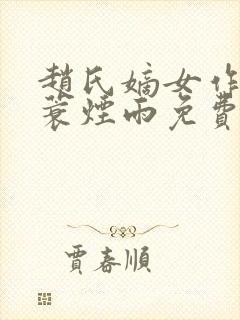 趙氏嫡女作
蓑煙雨免費
賈春順